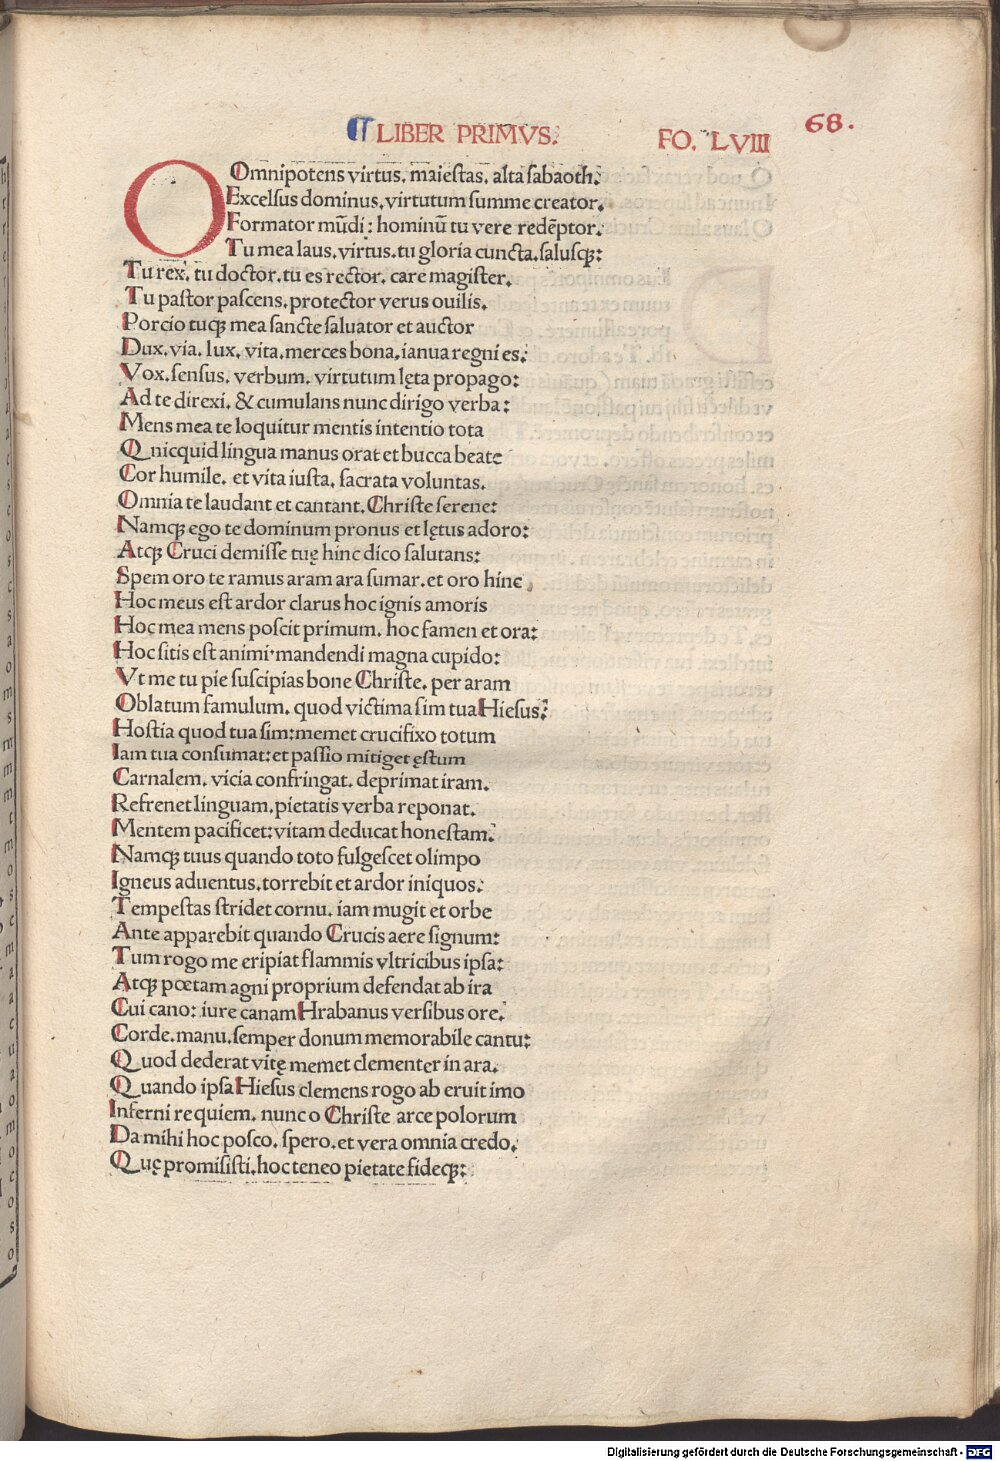 ¶ LIBER PRIMVS. FO. LVIII 68.
O Omnipotens virtus, maiestas, alta sabaoth:
Excelsus dominus, virtutum summe creator,
Formator mūdi: hominū tu vere redēptor.
Tu mea laus, virtus, tu gloria cuncta, salusqꝫ:
Tu rex, tu doctor, tu es rector, care magister,
Tu pastor pascens, protector verus ouilis,
Porcio tuqꝫ mea sancte saluator et auctor
Dux, via, lux, vita, merces bona, ianua regni es:
Vox, sensus, verbum, virtutum lęta propago:
Ad te direxi, & cumulans nunc dirigo verba:
Mens mea te loquitur mentis intentio tota
Quicquid lingua manus orat et bucca beate
Cor humile, et vita iusta, sacrata voluntas,
Omnia te laudant et cantant, Christe serene:
Namqꝫ ego te dominum pronus et lętus adoro:
Atqꝫ Cruci demisse tuę hinc dico salutans:
Spem oro te ramus aram ara sumar, et oro hinc,
Hoc meus est ardor clarus hoc ignis amoris
Hoc mea mens poscit primum, hoc famen et ora:
Hoc sitis est animi·mandendi magna cupido:
Vt me tu pie suscipias bone Christe, per aram
Oblatum famulum, quod victima sim tua Hiesus:
Hostia quod tua sim: memet crucifixo totum
Iam tua consumat: et passio mitiget ęstum
Carnalem, vicia confringat, deprimat iram,
Refrenet linguam, pietatis verba reponat,
Mentem pacificet: vitam deducat honestam:
Namqꝫ tuus quando toto fulgescet olimpo
Igneus aduentus, torrebit et ardor iniquos:
Tempestas stridet cornu, iam mugit et orbe
Ante apparebit quando Crucis aere signum:
Tum rogo me eripiat flammis vltricibus ipsa:
Atqꝫ poetam agni proprium defendat ab ira
Cui cano: iure canam Hrabanus versibus ore,
Corde, manu, semper donum memorabile cantu:
Quod dederat vitę memet clementer in ara,
Quando ipsa Hiesus clemens rogo ab eruit imo
Inferni requiem, nunc o Christe arce polorum
Da mihi hoc posco, spero, et vera omnia credo,
Quę promisisti, hoc teneo pietate fideqꝫ:
Digitalisierung gefördert durch die Deutsche Forschungsgemeinschaft - DFG